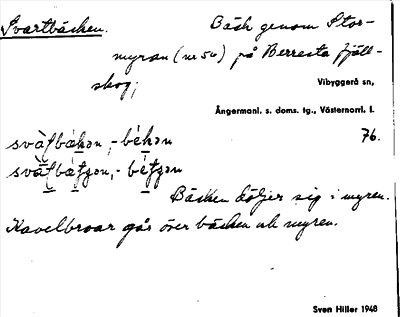 Svartbäcken. Bäck genom Stor-
myran (nr 56) på Berresta fjäll-
skog;
Vibyggerå sn,
Ångermanl. s. doms. tg., Västernorrl. l.
76.
Bäcken döljer sig i myren.
Kavelbroar går över bäcken och myren.
Sven Hiller 1948